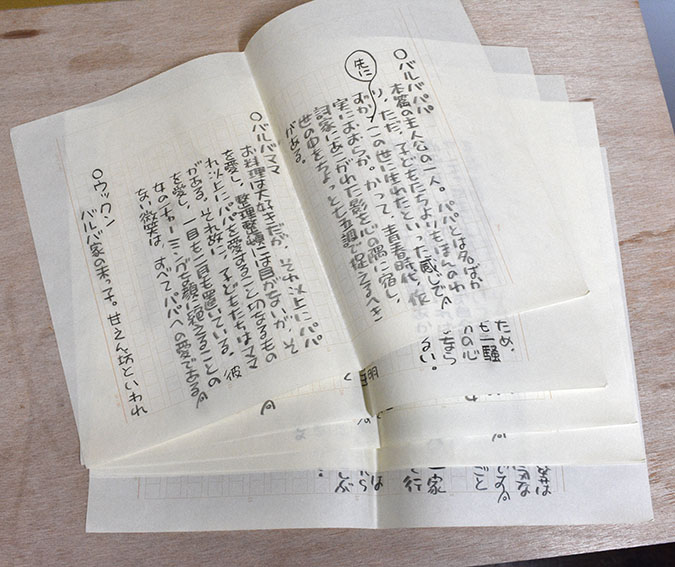 ため、
も一騒
の心
○バルバパパ
本篇の主人公の一人。パパとは名ばか
り、ただ、子どもたちよりもほんのわ
ずか先にこの世に生れたといった感じで
実におおらか。かつて、青春時代、作
詞家にあがれた影を心の隅に宿し、
世の中をちょっと七五調で捉える
がある。
るい。
○バルバママ
お料理は大好きだが、それ以上にパパ
を愛し、整理整頓には目がないが、そ
れ以上にパパを愛すること切なるもの
がある。それ故に、子どもたちはママ
を愛し、一目も二目も置いている。彼
女のチャーミングな顔に絶えることの
ない微笑は、すべてパパへの愛である。
○ウックン
バルバ家の末っ子。甘えん坊といわれ
ごと
一家
行